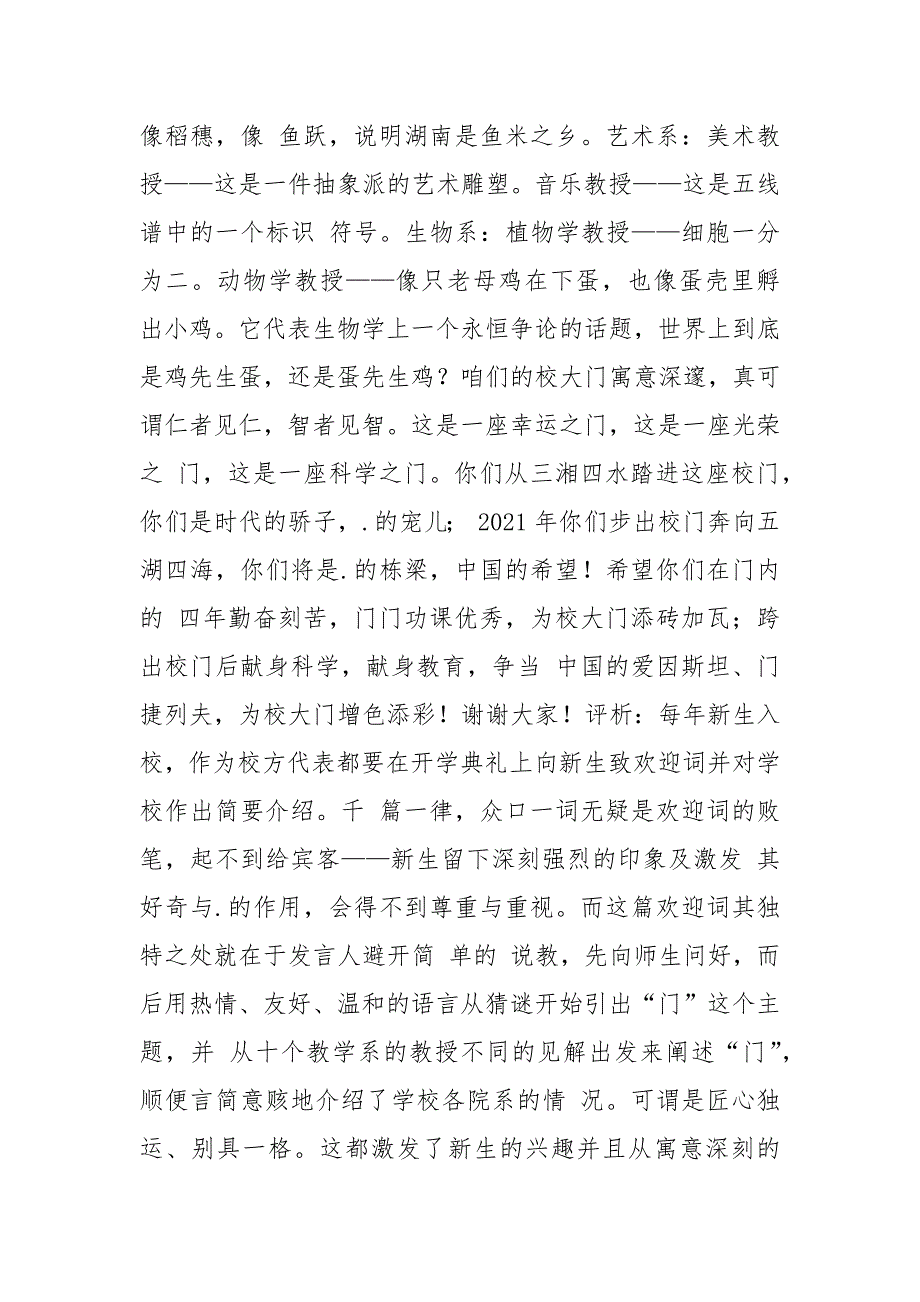 像稻穗，像 鱼跃，说明湖南是鱼米之乡。艺术系：美术教
授——这是一件抽象派的艺术雕塑。音乐教授——这是五线
谱中的一个标识 符号。生物系：植物学教授——细胞一分
为二。动物学教授——像只老母鸡在下蛋，也像蛋壳里孵
出小鸡。它代表生物学上一个永恒争论的话题，世界上到底
是鸡先生蛋，还是蛋先生鸡？咱们的校大门寓意深邃，真可
谓仁者见仁，智者见智。这是一座幸运之门，这是一座光荣
之 门，这是一座科学之门。你们从三湘四水踏进这座校门，
你们是时代的骄子，.的宠儿； 2021 年你们步出校门奔向五
湖四海，你们将是.的栋梁，中国的希望！希望你们在门内
的 四年勤奋刻苦，门门功课优秀，为校大门添砖加瓦；跨
出校门后献身科学，献身教育，争当 中国的爱因斯坦、门
捷列夫，为校大门增色添彩！谢谢大家！评析：每年新生入
校，作为校方代表都要在开学典礼上向新生致欢迎词并对学
校作出简要介绍。千 篇一律，众口一词无疑是欢迎词的败
笔，起不到给宾客——新生留下深刻强烈的印象及激发 其
好奇与.的作用，会得不到尊重与重视。而这篇欢迎词其独
特之处就在于发言人避开简 单的 说教，先向师生问好，而
后用热情、友好、温和的语言从猜谜开始引出“门”这个主
题，并 从十个教学系的教授不同的见解出发来阐述“门”，
顺便言简意赅地介绍了学校各院系的情 况。可谓是匠心独
运、别具一格。这都激发了新生的兴趣并且从寓意深刻的